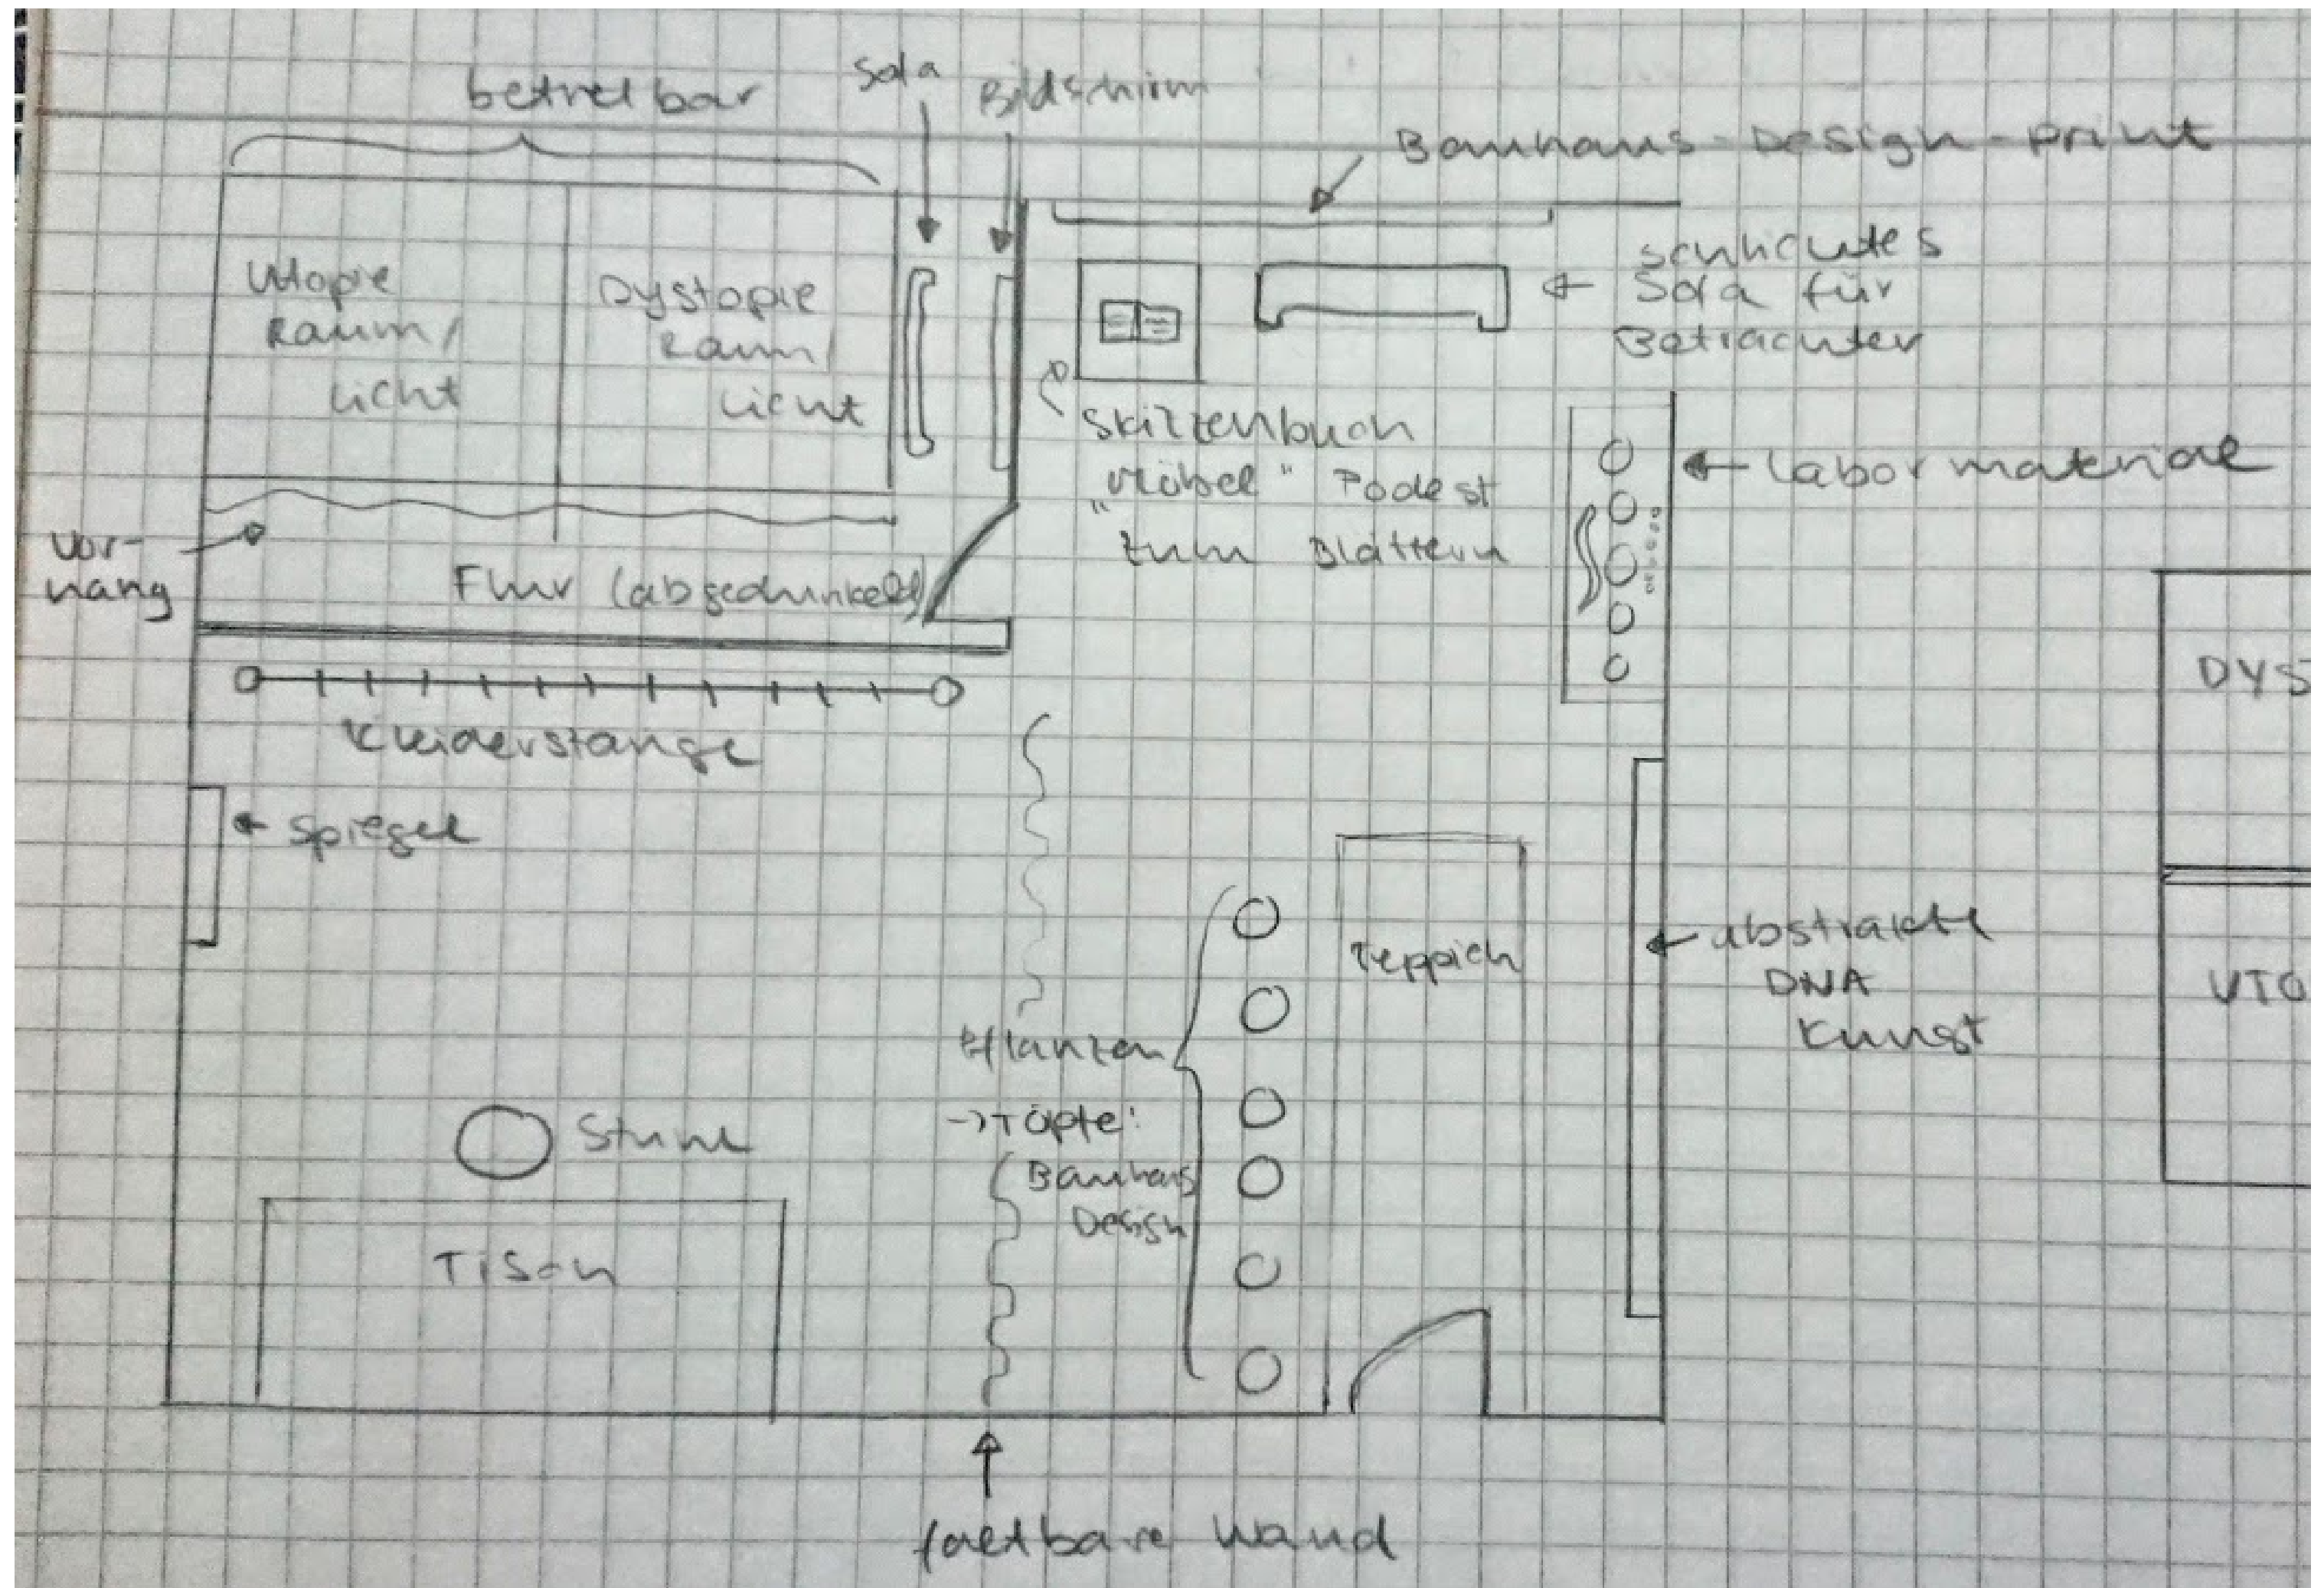 betretbar
Sofa
Bildschirm
Bauhaus-Design-print
Utopie
Raum/
Licht
Dystopie
Raum/
Licht
schlichtes
Sofa für
Betrachter
Skizzenbuch
"Möbel" Podest
zum Blättern
Labormaterial
Vor-
hang
Flur (abgedunkelt)
Kleiderstange
Spiegel
DYS
Teppich
abstrakte
DNA
Kunst
UTO
Pflanzen
->Töpfe:
Bauhaus
Design
Stuhl
Tisch
faltbare Wand